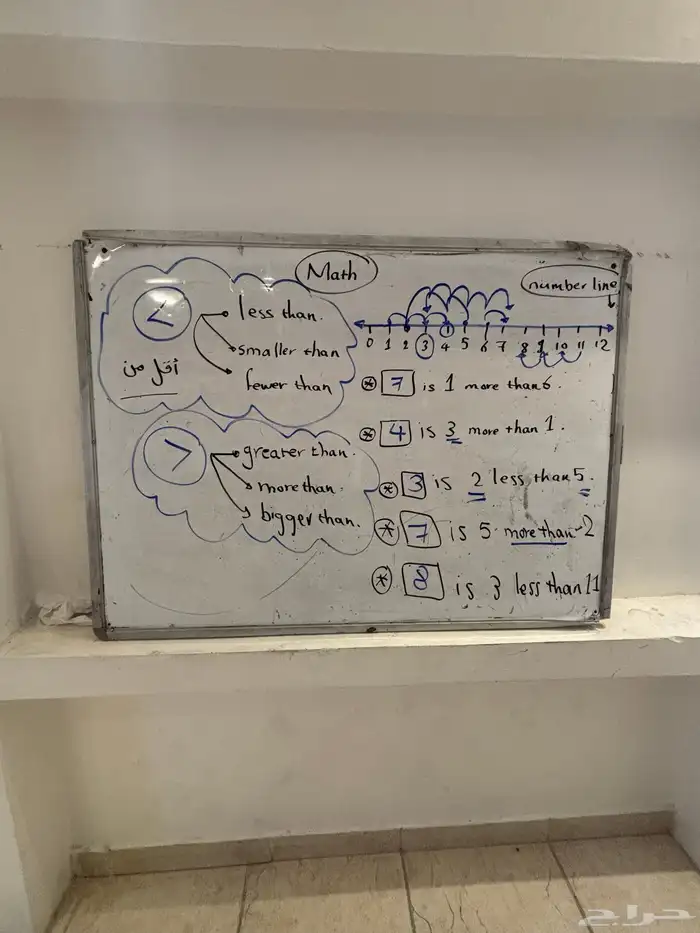 Math
<
less than.
smaller than
fewer than
أقل من
>
greater than.
more than.
bigger than.
number line
0 1 2 3 4 5 6 7 8 9 10 11 12
* 7 is 1 more than 6.
* 4 is 3 more than 1.
* 3 is 2 less than 5.
* 7 is 5 more than 2
* 8 is 3 less than 11
حراج